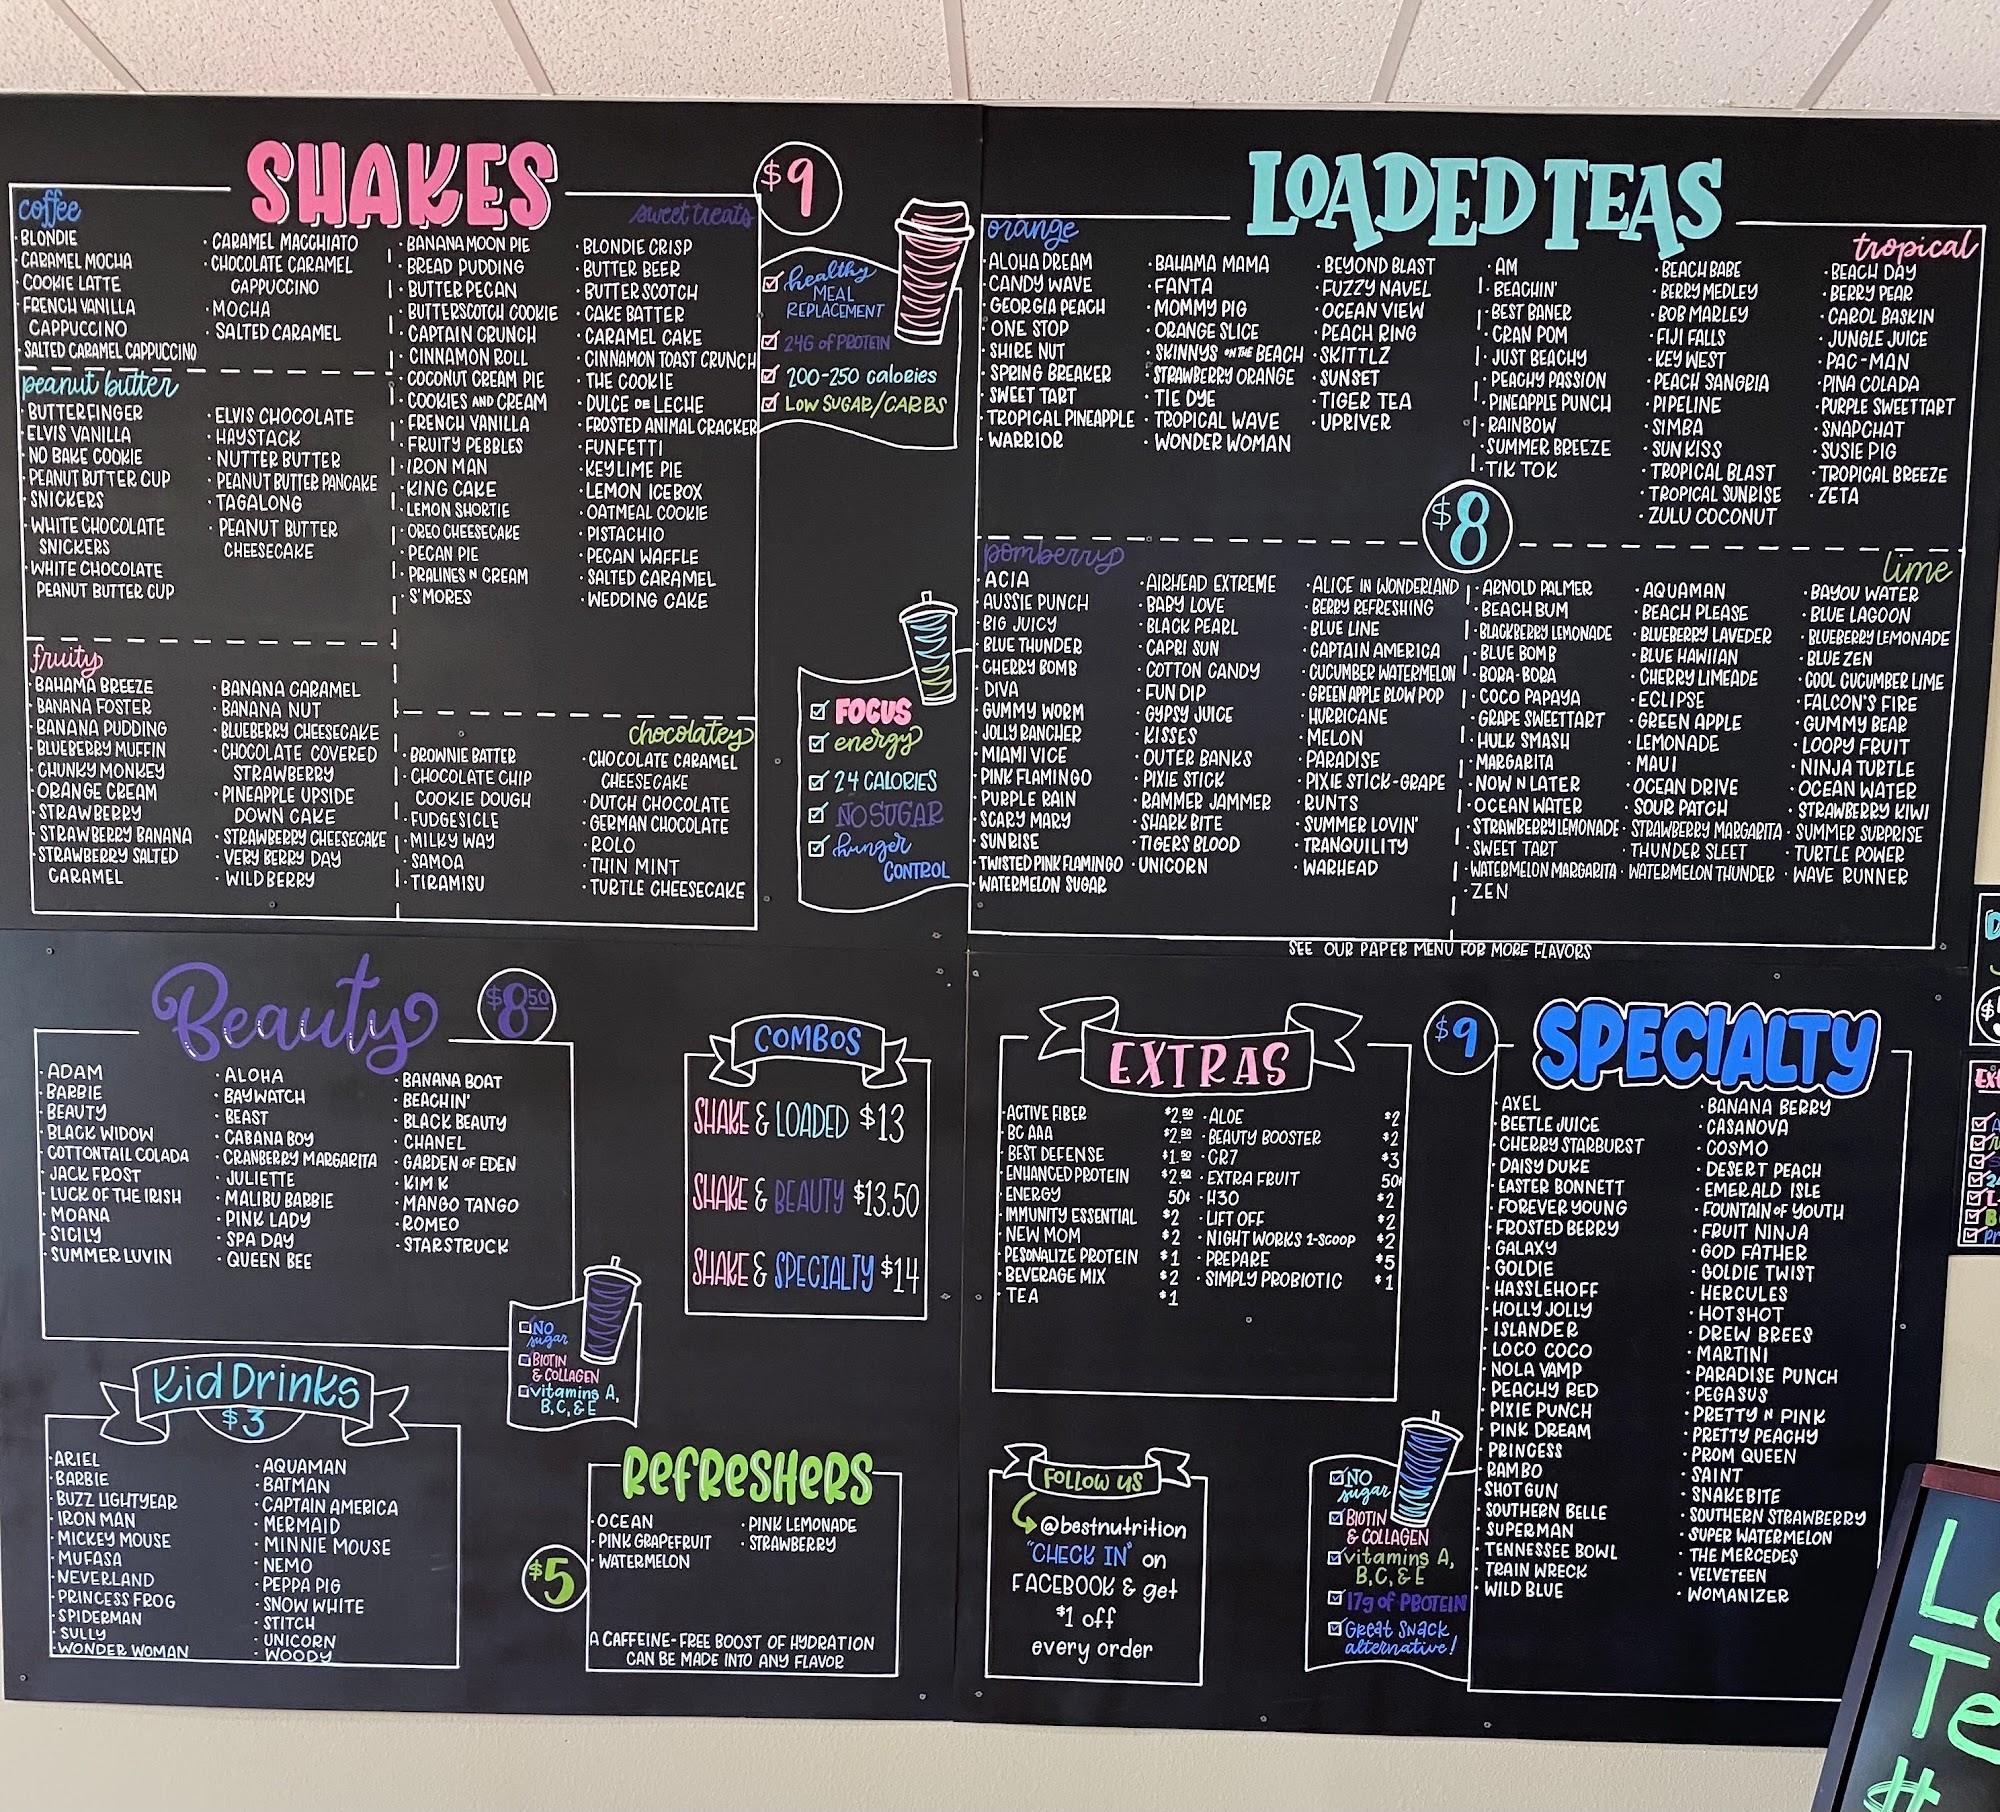 SHAKES
$9
coffee
· BLONDIE
· CARAMEL MOCHA
· COOKIE LATTE
· FRENCH VANILLA
CAPPUCCINO
· SALTED CARAMEL CAPPUCCINO
· CARAMEL MACCHIATO
· CHOCOLATE CARAMEL
CAPPUCCINO
· MOCHA
· SALTED CARAMEL
peanut butter
· BUTTERFINGER
· ELVIS VANILLA
· NO BAKE COOKIE
· PEANUT BUTTER CUP
· SNICKERS
· WHITE CHOCOLATE
SNICKERS
· WHITE CHOCOLATE
PEANUT BUTTER CUP
· ELVIS CHOCOLATE
· HAYSTACK
· NUTTER BUTTER
· PEANUT BUTTER PANCAKE
· TAGALONG
· PEANUT BUTTER
CHEESECAKE
fruity
· BAHAMA BREEZE
· BANANA FOSTER
· BANANA PUDDING
· BLUEBERRY MUFFIN
· CHUNKY MONKEY
· ORANGE CREAM
· STRAWBERRY
· STRAWBERRY BANANA
· STRAWBERRY SALTED
CARAMEL
· BANANA CARAMEL
· BANANA NUT
· BLUEBERRY CHEESECAKE
· CHOCOLATE COVERED
STRAWBERRY
· PINEAPPLE UPSIDE
DOWN CAKE
· STRAWBERRY CHEESECAKE
· VERY BERRY DAY
· WILD BERRY
sweet treats
· BANANA MOON PIE
· BREAD PUDDING
· BUTTER PECAN
· BUTTERSCOTCH COOKIE
· CAPTAIN CRUNCH
· CINNAMON ROLL
· COCONUT CREAM PIE
· COOKIES AND CREAM
· FRENCH VANILLA
· FRUITY PEBBLES
· IRON MAN
· KING CAKE
· LEMON SHORTIE
· OREO CHEESECAKE
· PECAN PIE
· PRALINES N CREAM
· S'MORES
· BLONDIE CRISP
· BUTTER BEER
· BUTTERSCOTCH
· CAKE BATTER
· CARAMEL CAKE
· CINNAMON TOAST CRUNCH
· THE COOKIE
· DULCE DE LECHE
· FROSTED ANIMAL CRACKER
· FUNFETTI
· KEY LIME PIE
· LEMON ICEBOX
· OATMEAL COOKIE
· PISTACHIO
· PECAN WAFFLE
· SALTED CARAMEL
· WEDDING CAKE
chocolatey
· BROWNIE BATTER
· CHOCOLATE CHIP
COOKIE DOUGH
· FUDGESICLE
· MILKY WAY
· SAMOA
· TIRAMISU
· CHOCOLATE CARAMEL
CHEESECAKE
· DUTCH CHOCOLATE
· GERMAN CHOCOLATE
· ROLO
· THIN MINT
· TURTLE CHEESECAKE
healthy
MEAL
REPLACEMENT
24G of PROTEIN
200-250 calories
LOW SUGAR/CARBS
FOCUS
energy
24 CALORIES
NO SUGAR
hunger
CONTROL
LOADED TEAS
$8
orange
· ALOHA DREAM
· CANDY WAVE
· GEORGIA PEACH
· ONE STOP
· SHIRE NUT
· SPRING BREAKER
· SWEET TART
· TROPICAL PINEAPPLE
· WARRIOR
· BAHAMA MAMA
· FANTA
· MOMMY PIG
· ORANGE SLICE
· SKINNYS ON THE BEACH
· STRAWBERRY ORANGE
· TIE DYE
· TROPICAL WAVE
· WONDER WOMAN
· BEYOND BLAST
· FUZZY NAVEL
· OCEAN VIEW
· PEACH RING
· SKITTLZ
· SUNSET
· TIGER TEA
· UPRIVER
tropical
· AM
· BEACHIN'
· BEST BANER
· CRAN POM
· JUST BEACHY
· PEACHY PASSION
· PINEAPPLE PUNCH
· RAINBOW
· SUMMER BREEZE
· TIK TOK
· BEACH BABE
· BERRY MEDLEY
· BOB MARLEY
· FIJI FALLS
· KEY WEST
· PEACH SANGRIA
· PIPELINE
· SIMBA
· SUN KISS
· TROPICAL BLAST
· TROPICAL SUNRISE
· ZULU COCONUT
· BEACH DAY
· BERRY PEAR
· CAROL BASKIN
· JUNGLE JUICE
· PAC-MAN
· PINA COLADA
· PURPLE SWEETTART
· SNAPCHAT
· SUSIE PIG
· TROPICAL BREEZE
· ZETA
pomberry
· ACIA
· AUSSIE PUNCH
· BIG JUICY
· BLUE THUNDER
· CHERRY BOMB
· DIVA
· GUMMY WORM
· JOLLY RANCHER
· MIAMI VICE
· PINK FLAMINGO
· PURPLE RAIN
· SCARY MARY
· SUNRISE
· TWISTED PINK FLAMINGO
· WATERMELON SUGAR
· AIRHEAD EXTREME
· BABY LOVE
· BLACK PEARL
· CAPRI SUN
· COTTON CANDY
· FUN DIP
· GYPSY JUICE
· KISSES
· OUTER BANKS
· PIXIE STICK
· RAMMER JAMMER
· SHARK BITE
· TIGERS BLOOD
· UNICORN
· ALICE IN WONDERLAND
· BERRY REFRESHING
· BLUE LINE
· CAPTAIN AMERICA
· CUCUMBER WATERMELON
· GREEN APPLE BLOW POP
· HURRICANE
· MELON
· PARADISE
· PIXIE STICK-GRAPE
· RUNTS
· SUMMER LOVIN'
· TRANQUILITY
· WARHEAD
lime
· ARNOLD PALMER
· BEACH BUM
· BLACKBERRY LEMONADE
· BLUE BOMB
· BORA-BORA
· COCO PAPAYA
· GRAPE SWEETTART
· HULK SMASH
· MARGARITA
· NOW N LATER
· OCEAN WATER
· STRAWBERRY LEMONADE
· SWEET TART
· WATERMELON MARGARITA
· ZEN
· AQUAMAN
· BEACH PLEASE
· BLUEBERRY LAVEDER
· BLUE HAWIIAN
· CHERRY LIMEADE
· ECLIPSE
· GREEN APPLE
· LEMONADE
· MAUI
· OCEAN DRIVE
· SOUR PATCH
· STRAWBERRY MARGARITA
· THUNDER SLEET
· WATERMELON THUNDER
· BAYOU WATER
· BLUE LAGOON
· BLUEBERRY LEMONADE
· BLUE ZEN
· COOL CUCUMBER LIME
· FALCON'S FIRE
· GUMMY BEAR
· LOOPY FRUIT
· NINJA TURTLE
· OCEAN WATER
· STRAWBERRY KIWI
· SUMMER SURPRISE
· TURTLE POWER
· WAVE RUNNER
SEE OUR PAPER MENU FOR MORE FLAVORS
Beauty
$8.50
· ADAM
· BARBIE
· BEAUTY
· BLACK WIDOW
· COTTONTAIL COLADA
· JACK FROST
· LUCK OF THE IRISH
· MOANA
· SICILY
· SUMMER LUVIN
· ALOHA
· BAYWATCH
· BEAST
· CABANA BOY
· CRANBERRY MARGARITA
· JULIETTE
· MALIBU BARBIE
· PINK LADY
· SPA DAY
· QUEEN BEE
· BANANA BOAT
· BEACHIN'
· BLACK BEAUTY
· CHANEL
· GARDEN OF EDEN
· KIM K
· MANGO TANGO
· ROMEO
· STARSTRUCK
NO
sugar
BIOTIN
& COLLAGEN
vitamins A,
B,C,& E
Kid Drinks
$3
· ARIEL
· BARBIE
· BUZZ LIGHTYEAR
· IRON MAN
· MICKEY MOUSE
· MUFASA
· NEVERLAND
· PRINCESS FROG
· SPIDERMAN
· SULLY
· WONDER WOMAN
· AQUAMAN
· BATMAN
· CAPTAIN AMERICA
· MERMAID
· MINNIE MOUSE
· NEMO
· PEPPA PIG
· SNOW WHITE
· STITCH
· UNICORN
· WOODY
COMBOS
SHAKE & LOADED $13
SHAKE & BEAUTY $13.50
SHAKE & SPECIALTY $14
REFRESHERS
$5
· OCEAN
· PINK GRAPEFRUIT
· WATERMELON
· PINK LEMONADE
· STRAWBERRY
A CAFFEINE-FREE BOOST OF HYDRATION
CAN BE MADE INTO ANY FLAVOR
EXTRAS
· ACTIVE FIBER $2.50
· BCAAA $2.50
· BEST DEFENSE $1.50
· ENHANCED PROTEIN $2.50
· ENERGY 50¢
· IMMUNITY ESSENTIAL $2
· NEW MOM $2
· PESONALIZE PROTEIN $1
· BEVERAGE MIX $2
· TEA $1
· ALOE $2
· BEAUTY BOOSTER $2
· CR7 $3
· EXTRA FRUIT 50¢
· H30 $2
· LIFT OFF $2
· NIGHT WORKS 1-SCOOP $2
· PREPARE $5
· SIMPLY PROBIOTIC $1
FOLLOW US
@bestnutrition
"CHECK IN" on
FACEBOOK & get
$1 off
every order
SPECIALTY
$9
· AXEL
· BEETLE JUICE
· CHERRY STARBURST
· DAISY DUKE
· EASTER BONNETT
· FOREVER YOUNG
· FROSTED BERRY
· GALAXY
· GOLDIE
· HASSLEHOFF
· HOLLY JOLLY
· ISLANDER
· LOCO COCO
· NOLA VAMP
· PEACHY RED
· PIXIE PUNCH
· PINK DREAM
· PRINCESS
· RAMBO
· SHOT GUN
· SOUTHERN BELLE
· SUPERMAN
· TENNESSEE BOWL
· TRAIN WRECK
· WILD BLUE
· BANANA BERRY
· CASANOVA
· COSMO
· DESERT PEACH
· EMERALD ISLE
· FOUNTAIN OF YOUTH
· FRUIT NINJA
· GOD FATHER
· GOLDIE TWIST
· HERCULES
· HOTSHOT
· DREW BREES
· MARTINI
· PARADISE PUNCH
· PEGASUS
· PRETTY N PINK
· PRETTY PEACHY
· PROM QUEEN
· SAINT
· SNAKEBITE
· SOUTHERN STRAWBERRY
· SUPER WATERMELON
· THE MERCEDES
· VELVETEEN
· WOMANIZER
NO
sugar
BIOTIN
& COLLAGEN
vitamins A,
B,C,& E
17g of PROTEIN
Great snack
alternative!